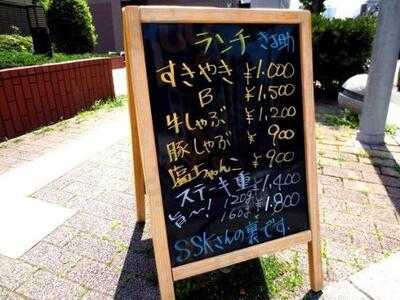 ランチ きよ助
すきやき ¥1.000
B ¥1.500
牛しゃぶ ¥1.200
豚しゃぶ ¥ 900
塩ちゃんこ ¥900
ステーキ重 120g ¥1.400
旨〜! 160g ¥1.800
SSKさんの裏です.